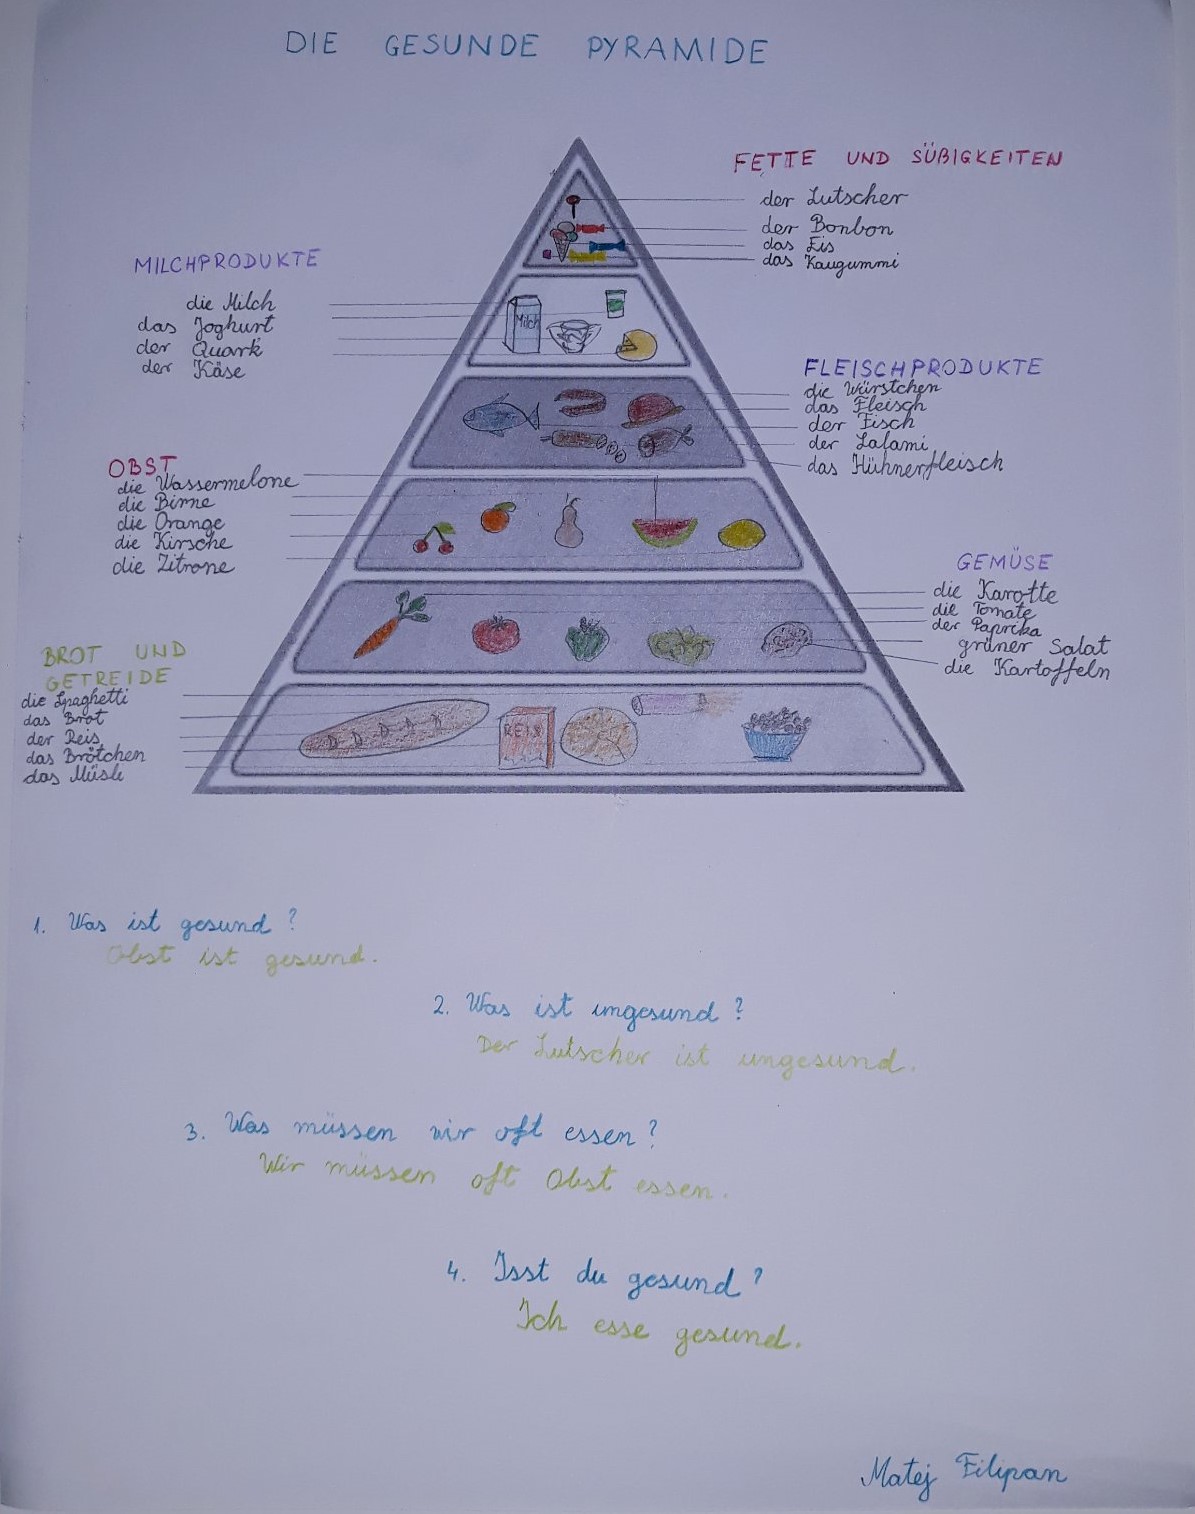 DIE GESUNDE PYRAMIDE
FETTE UND SÜßIGKEITEN
der Lutscher
der Bonbon
das Eis
das Kaugummi
MILCHPRODUKTE
die Milch
das Joghurt
der Quark
der Käse
Milch
FLEISCHPRODUKTE
die Würstchen
das Fleisch
der Fisch
der Salami
das Hühnerfleisch
OBST
die Wassermelone
die Birne
die Orange
die Kirsche
die Zitrone
GEMÜSE
die Karotte
die Tomate
der Paprika
grüner Salat
die Kartoffeln
BROT UND
GETREIDE
die Spaghetti
das Brot
der Reis
das Brötchen
das Müsli
REIS
1. Was ist gesund?
Obst ist gesund.
2. Was ist ungesund?
Der Lutscher ist ungesund.
3. Was müssen wir oft essen?
Wir müssen oft Obst essen.
4. Isst du gesund?
Ich esse gesund.
Matej Filipan